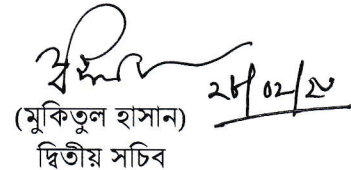 ২৮/০২/২০
(মুকিতুল হাসান)
দ্বিতীয় সচিব